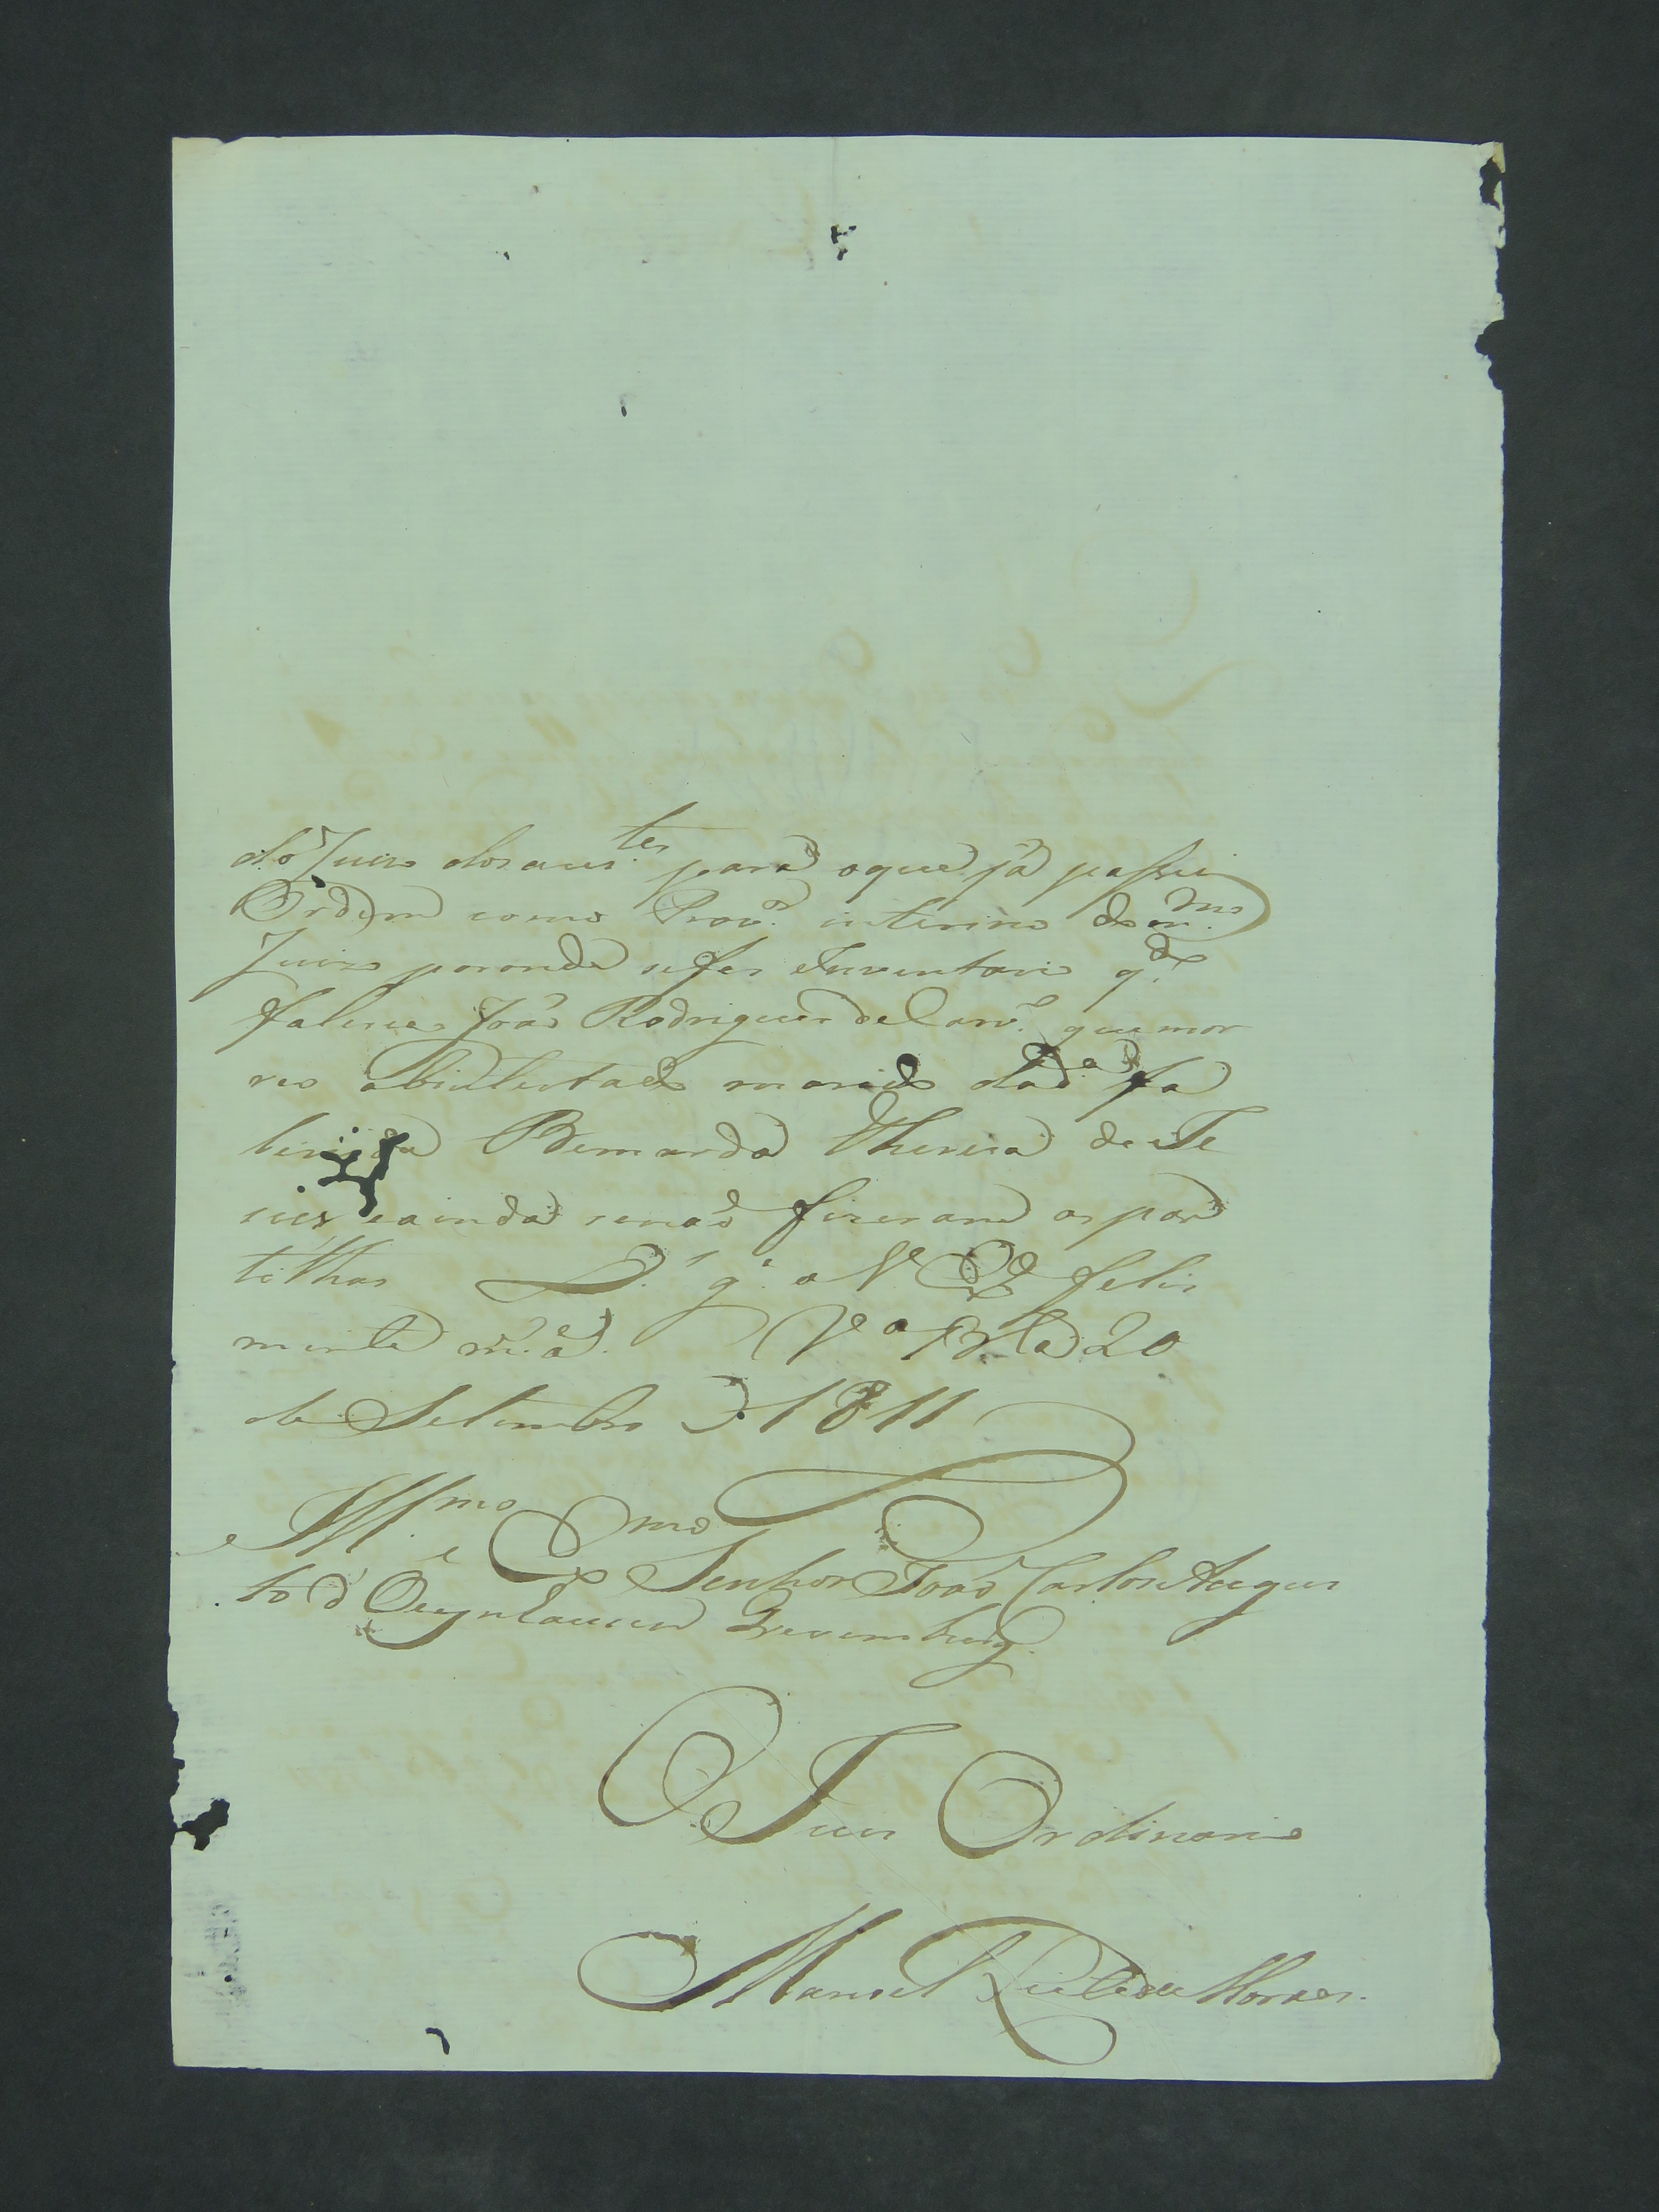 do Juizo dos aus.tes para o que já passei
Ordem como Prov.or interino do m.mo
Juizo por onde se fes Inventario q.do
faleceo João Rodrigues de Carv.o que mor
reo abintestado marido da d.a fa
lecida Bernarda Thereza de Je
zus e ainda se não fizerano as par
tilhas D.s g.e a V Ex.a felis
mente m.s a.s V.a 20
de Setembro D 1811
Ill.mo e Ex.mo Senhor João Carlos Augus
to d' Oeynhausen Grevemburg.
O Juis Ordinario
Manoel Leite de Moraes.